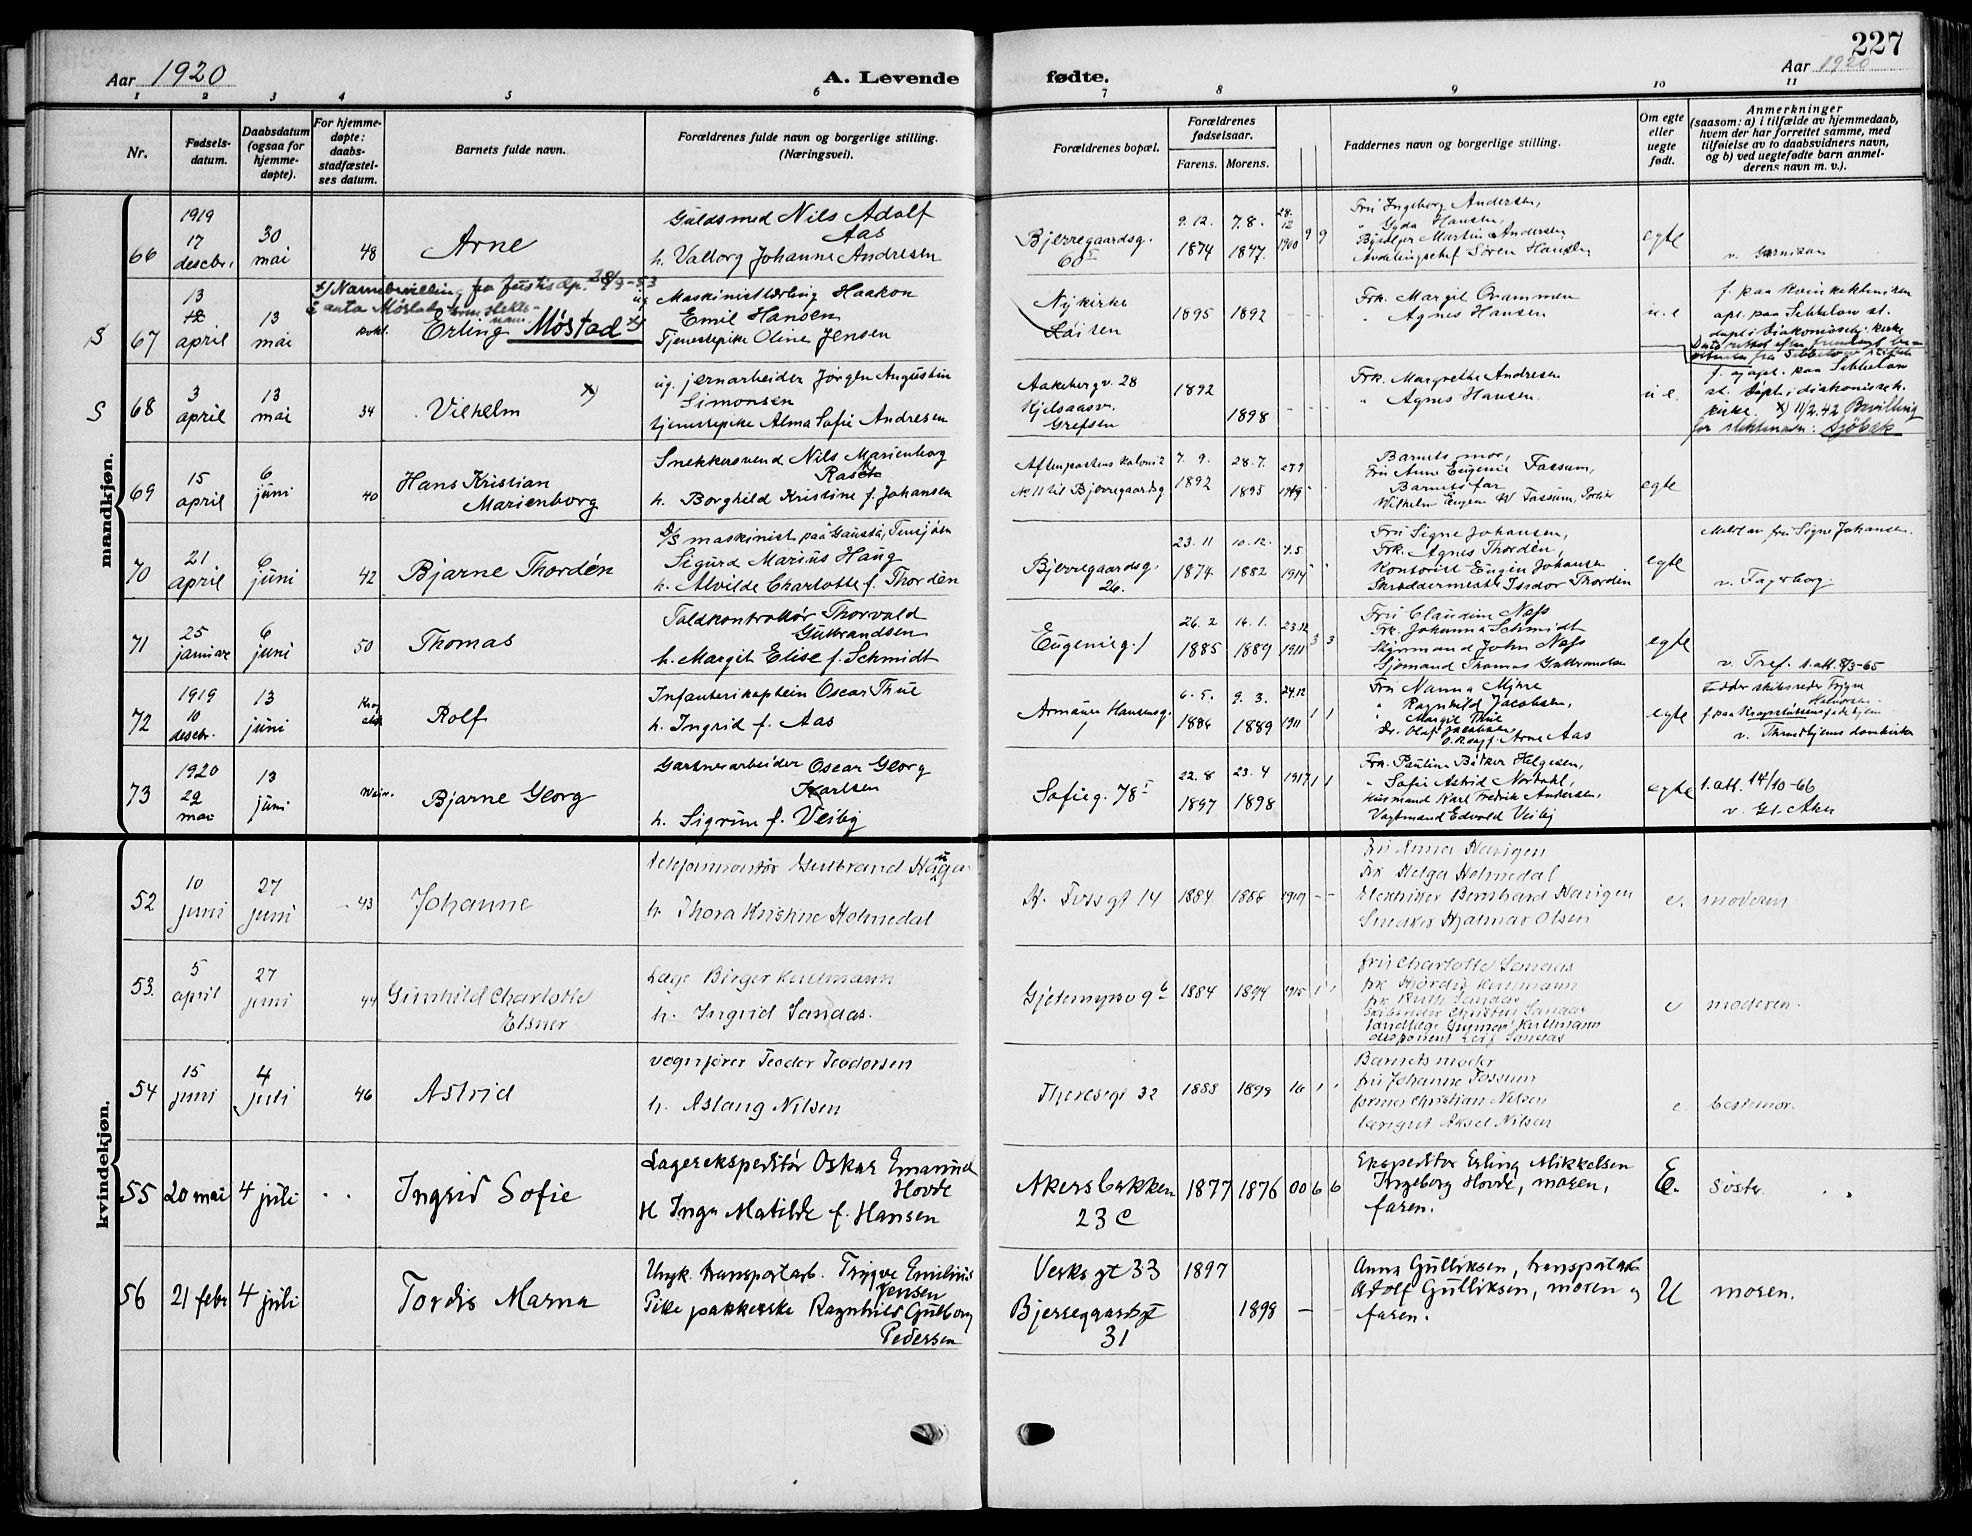 227
Aar 1920
A. Levende fødte.
Aar 1920
1 2 3 4 5 6 7 8 9 10 11
Nr.
Fødsels-
datum.
Daabsdatum
(ogsaa for
hjemme-
døpte).
For hjemme-
døpte:
daabs-
stadfæstel-
ses datum.
Barnets fulde navn.
Forældrenes fulde navn og borgerlige stilling.
(Næringsvei).
Forældrenes bopæl.
Forældrenes
fødselsaar.
Farens. Morens.
Faddernes navn og borgerlige stilling.
Om egte
eller
uegte
født.
Anmerkninger
(saasom: a) i tilfælde av hjemmedaab,
hvem der har forrettet samme, med
tilføielse av to daabsvidners navn,
og b) ved uegtefødte barn anmel-
derens navn m. v.).
mandkjøn.
66
1919
17
desebr.
30
mai
48
Arne
Guldsmed Nils Adolf
Aas
h. Valborg Johanne Andresen
Bjerregaardsg.
60
9.12. 1874
7.8. 1877
28.
12
1900
9 9
Fru Ingeborg Andersen,
" Gyda Hansen,
Martin Andersen
Avdelingschef Sören Hansen
egte
v. Garnison
S
67
13
12
april
13
mai
x) Navnebevilling fra Justisdep. 28/9-53
å anta Møstad som slekts-
navn.
Erling Møstad x)
ug Maskinistlærling Haakon
Emil Hansen
Tjenestepike Oline Jensen
Nykirke
Löiten
1895 1892
Frk. Margit Brammen
" Agnes Hansen
u.e
f. paa kvinkekliniken
dept i diakonissehj. kirke
S
68
3
april
13
mai
34
Vilhelm x)
ug. jernarbeider Jörgen Augustin
Simonsen
tjenestepike Alma Sofie Andresen
Aakebergv. 28
Kjelsaasv.
Grefsen
1892
1898
Frk. Margrethe Andresen
" Agnes Hansen.
u.e.
st. döpt i diakonisseh.
kirke. x) 11/2.42 Bevilling
for slektsnavn: Sjöbak
69
15
april
6
juni
40
Hans Kristian
Marienborg
Snekkersvend Nils Marienborg
Rasch
h. Borghild Kristine f. Johansen
Aftenpostens koloni 2
No 11 til Bjerregaardsg
7.9. 1892
28.7. 1895
27.9
1919
Barnets mor,
Fru Anne Eugenie Fossum,
Barnets far
Wilhelm Eugen W Fossum, Portier
egte
70
21
april
6
juni
42
Bjarne Thordén
D/S maskinist paa Gausta, Tinnsjöen
Sigurd Marius Haug
h. Alvilde Charlotte f. Thordén
Bjerregaardsg.
26.
23.11 1874
10.12. 1882
7.5
1914
Fru Signe Johansen,
Frk. Agnes Thordén,
Kontorist Eugen Johansen
Skræddermester Issdor Thordén
egte
Meldt av fru Signe Johansen.
v. Fagerborg.
71
25
januar
6
juni
50
Thomas
Toldkontrollör Thorvald
Gulbrandsen
h. Margit Elise f. Schmidt
Eugenieg. 1
26.2 1885
16.1. 1889
23.12
1911
3 3
Fru Claudine Næss
Frk. Johanna Schmidt
Styrmand John Næss
Sjömand Thomas Gulbrandsen
egte
v. Tref. 1.att. 8/3-65
72
1919
10
desebr.
13
juni
Rolf
Infanterikaptein Oscar Thue
h. Ingrid f. Aas
Armauer Hansensg.
1
6.5. 1884
9.3. 1889
24.12
1911
1 1
Fru Nanna Myhre
" Ragnhild Jacobsen,
" Margit Thue
Dr. Olaf Jacobsen
Arne Aas
egte
Fadder skibsreder Trygve
Halvorsen
v. Throndhjems domkirke
73
1920
29
mai
13
juni
Bjarne Georg
Gartnerarbeider Oscar Georg
Karlsen
h. Sigrun f. Veiby
Sofieg. 78
22.8 1897
23.4 1898
1917
1 1
Frk. Pauline Bölker Helgesen,
" Sofie Astrid Nordahl,
Husmand Karl Fredrik Andersen,
Vagtmand Edvald Veiby
egte
1.att. 14/10-66
v. Gl. Aker
kvindekjøn.
52
10
juni
27
juni
43
Johanne
telefonmontør Gulbrand Hauga
h. Thora Kristine Holmedal
H. Fossgt 14
1884 1886 1909 - -
Fru Anna Havigen
Frk Helga Holmedal
Elektriker Bernhard Havigen
Snedker Hjalmar Olsen
e.
moderen
53.
5
april
27
juni
44
Gunhild Charlotte
Elsner
Læge Birger Kullmann
h. Ingrid Sandas.
Gjetemyrsv 9 b
1884 1894 1915 1 1
fru Charlotte Sandas
frk Hjørdis Kullmann
frk Ruth Sandas
Skibsreder Christen Sandas
Tandlæge Gunnar Kullmann
disponent Leif Sandas
e
moderen.
54
15
juni
4
juli
46
Astrid
vognfører Teodor Teodorsen
h. Aslaug Nilsen
Theresegt 32
1888 1898 16 1 1
Barnets moder
fru Johanne Fossum
former Christian Nilsen
Aksel Nilsen
e.
bestemor.
55
20 mai
4 juli
Ingrid Sofie
Lagerekspeditør Oskar Emanuel
Hovde
H Inga Matilde f. Hansen
Akersbakken
23 c
1877 1876 00 6 6
Ekspeditør Erling Mikkelsen
Ingeborg Hovde, moren,
faren.
E.
Søster
56
21 febr
4 juli
Tordis Marna
Ungk. transportarb. Trygve Emilius
Jensen
Pike pakkerske Ragnhild Gulborg
Pedersen
Verksgt 33
Bjerregaardsgt
31
1897
1898
Anna Gulliksen, transportarb
Adolf Gulliksen, moren og
faren.
U
moren.